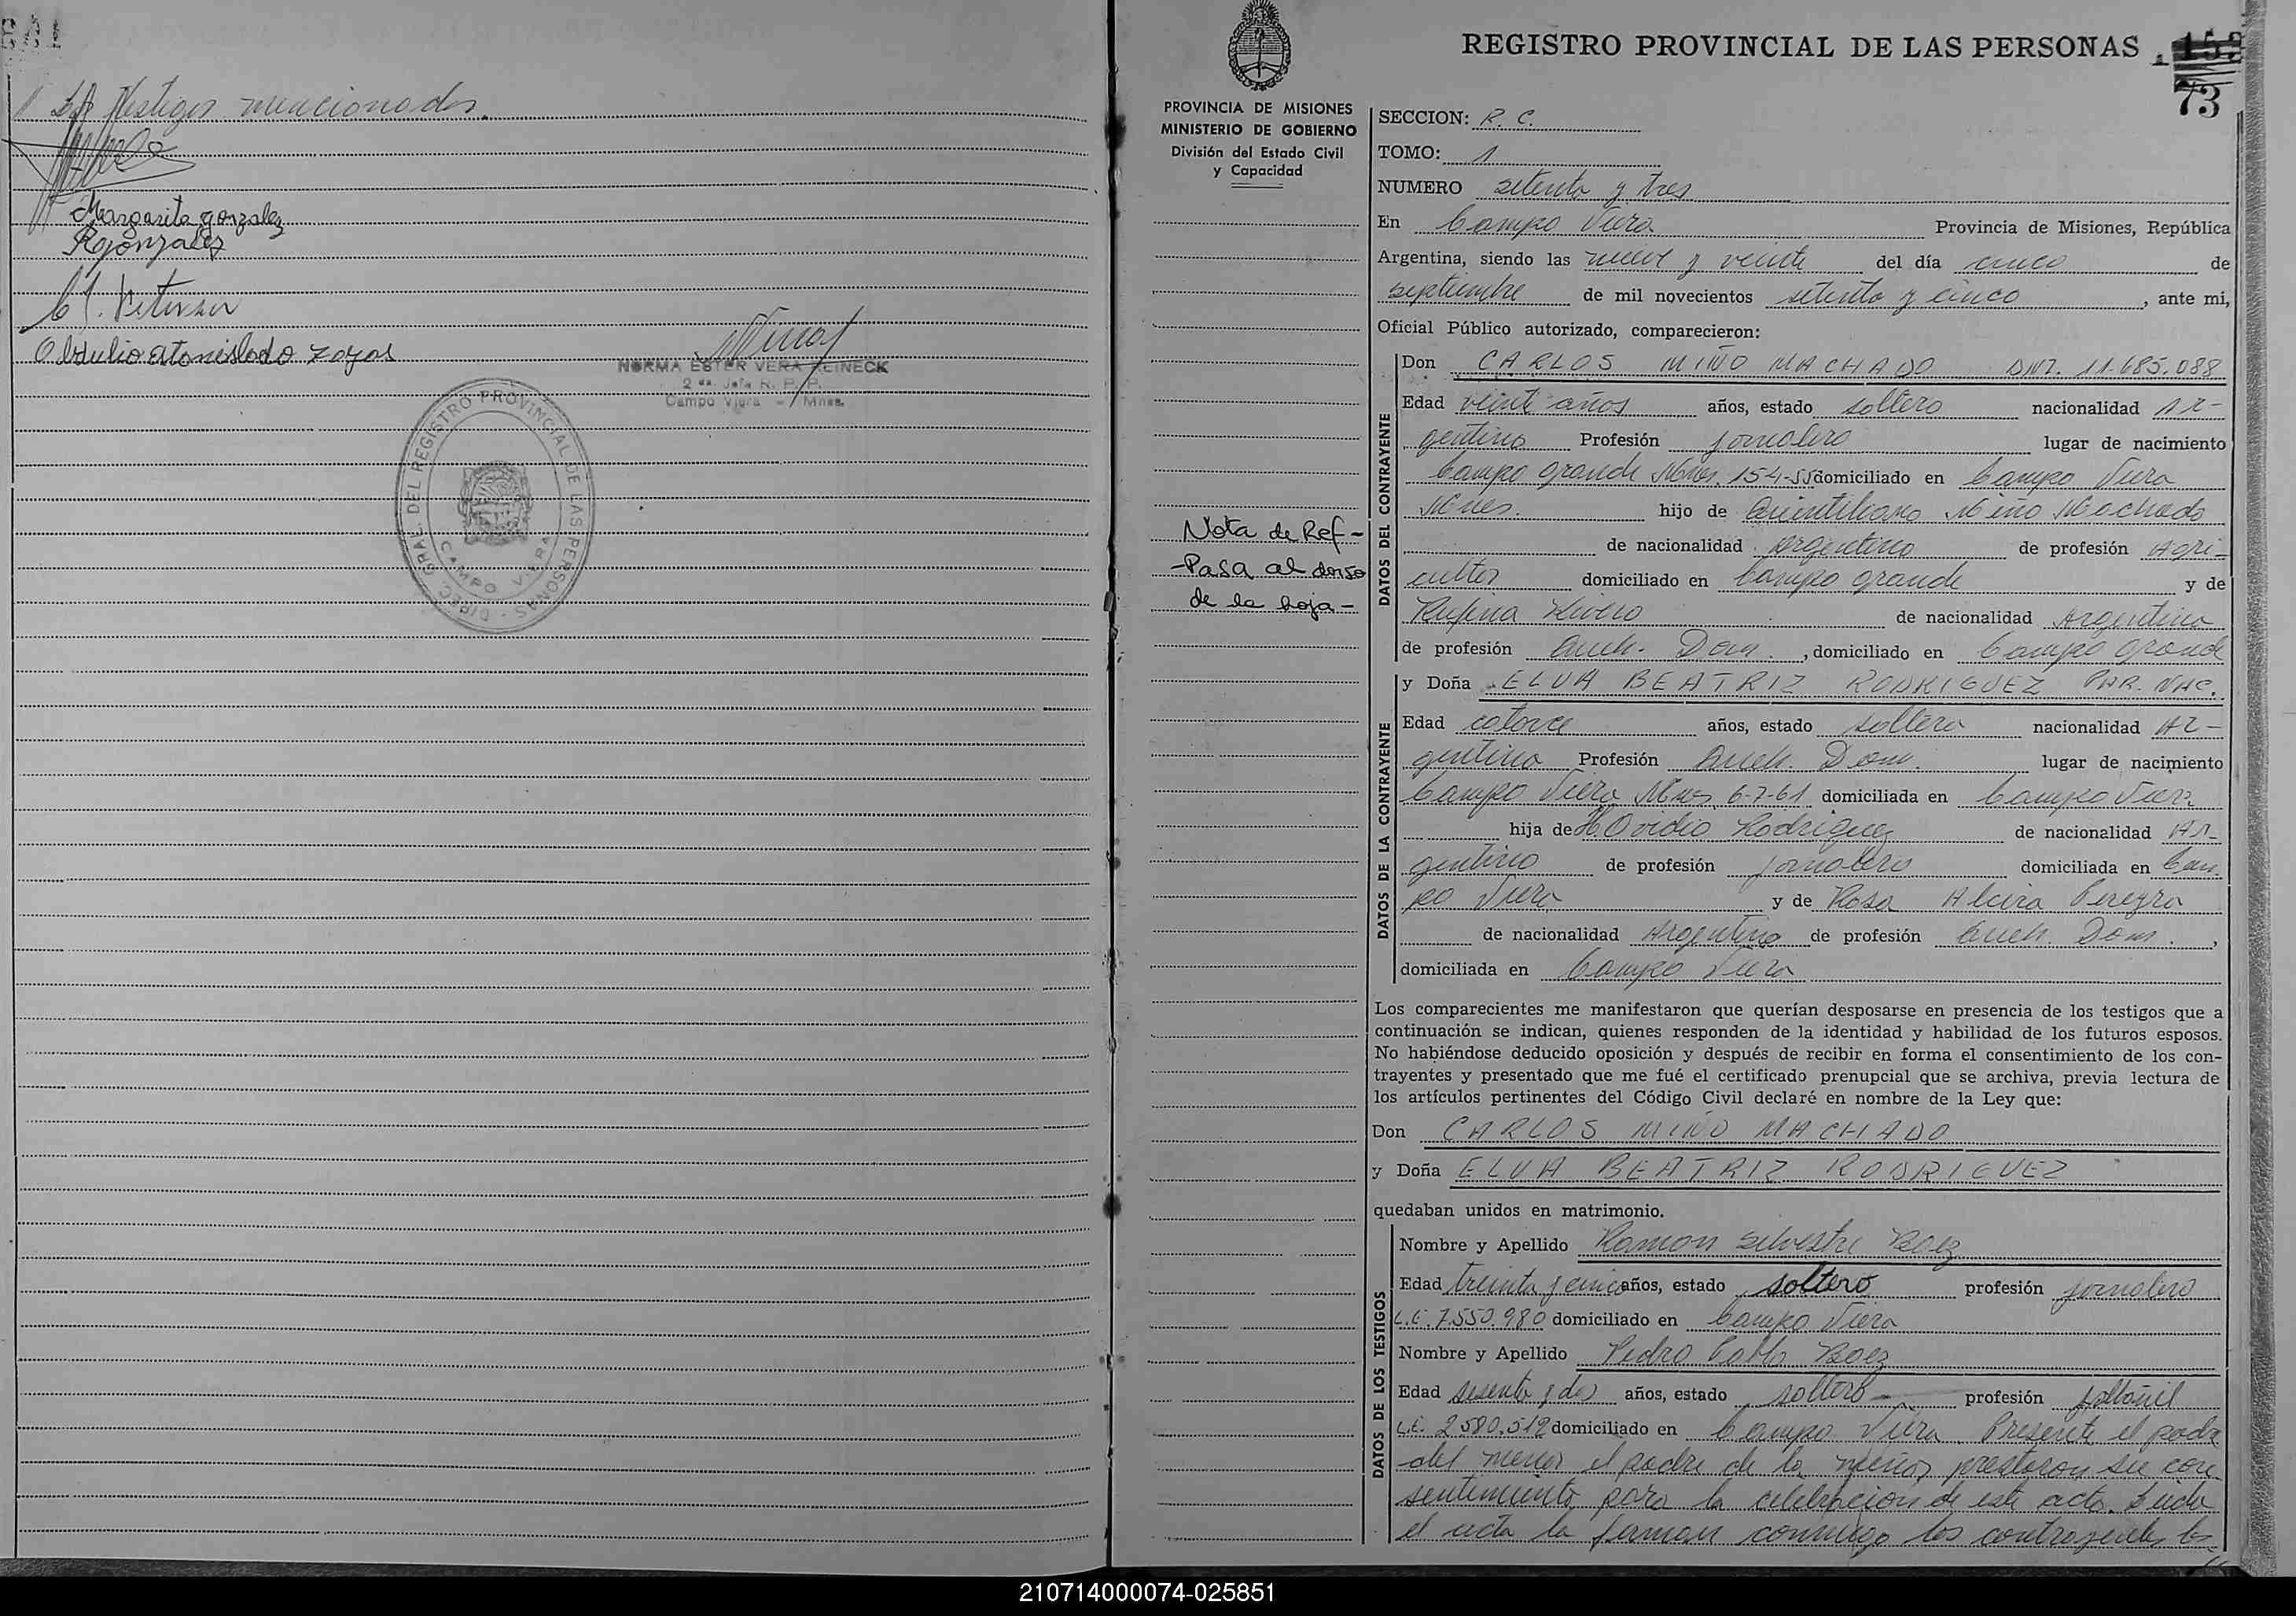 los testigos mencionados.
Margarita gonzalez
Rgonzalez
Obdulio estanislado zayas
NORMA ESTER VERA REINECK
2da. Jefa R. P. P.
Campo Viera - Mnes.
DIREC. GRAL. DEL REGISTRO PROVINCIAL DE LAS PERSONAS -
CAMPO VIERA
REGISTRO PROVINCIAL DE LAS PERSONAS
73
PROVINCIA DE MISIONES
MINISTERIO DE GOBIERNO
División del Estado Civil
y Capacidad
Nota de Ref-
-Pasa al dorso
de la hoja-
SECCION: R. C.
TOMO: 1
NUMERO setenta y tres
En Campo Viera Provincia de Misiones, República
Argentina, siendo las nueve y veinte del día cinco de
septiembre de mil novecientos setenta y cinco, ante mi,
Oficial Público autorizado, comparecieron:
DATOS DEL CONTRAYENTE
Don CARLOS MIÑO MACHADO DNI. 11.685.088
Edad veinte años años, estado soltero nacionalidad Ar-
gentino Profesión jornalero lugar de nacimiento
Campo Grande Mnes. 15-4-55 domiciliado en Campo Viera
Mnes. hijo de Quintiliano Miño Machado
de nacionalidad argentino de profesión Agri-
cultor domiciliado en Campo Grande y de
Rufina Rivero de nacionalidad Argentina
de profesión Queh. Dom., domiciliado en Campo Grande
DATOS DE LA CONTRAYENTE
y Doña ELVA BEATRIZ RODRIGUEZ PAR. NAC.
Edad catorce años, estado soltera nacionalidad Ar-
gentina Profesión Queh. Dom. lugar de nacimiento
Campo Viera Mnes 6-7-61 domiciliada en Campo Viera
hija de Ovidio Rodriguez de nacionalidad Ar-
gentino de profesión jornalero domiciliada en Cam-
po Viera y de Rosa Alcira Pereyra
de nacionalidad Argentina de profesión Queh. Dom.,
domiciliada en Campo Viera
Los comparecientes me manifestaron que querían desposarse en presencia de los testigos que a
continuación se indican, quienes responden de la identidad y habilidad de los futuros esposos.
No habiéndose deducido oposición y después de recibir en forma el consentimiento de los con-
trayentes y presentado que me fué el certificado prenupcial que se archiva, previa lectura de
los artículos pertinentes del Código Civil declaré en nombre de la Ley que:
Don CARLOS MIÑO MACHADO
y Doña ELVA BEATRIZ RODRIGUEZ
quedaban unidos en matrimonio.
DATOS DE LOS TESTIGOS
Nombre y Apellido Ramon Silvestre Baez
Edad treinta y cinco años, estado soltero profesión jornalero
L.E. 7.550.980 domiciliado en Campo Viera
Nombre y Apellido Pedro Pablo Baez
Edad sesenta y dos años, estado soltero - profesión albañil
L.E. 2580.512 domiciliado en Campo Viera. Presente el padre
del menor el padre de la menor prestaron su con
sentimiento para la celebracion de este acto. Leida
el acta la firman conmigo los contrayentes los
210714000074-025851